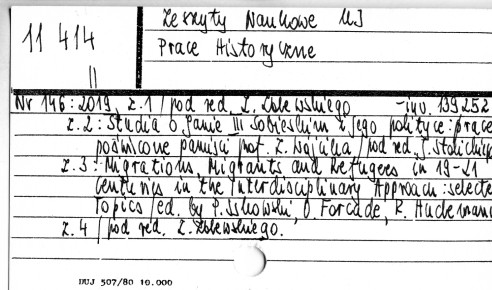 Zeszyty Naukowe UJ
11 414
Prace Historyczne
II
Nr 146: 2019, z.1 / pod red. Z. - inv. 139252
z.2: Studia o Janie III Sobieskim i jego polityce: prace
poświęcone pamięci prof. Z. Wójcika / pod red. J. Stolicki
z.3: Migrations, Migrants and Refugees in 19-21
Centuries in the Interdisciplinary Approach: selecte
Topics / ed. by P. O. Forcade, R. Hudemann
z.4 / pod red. Z.
DUJ 507/80 10.000